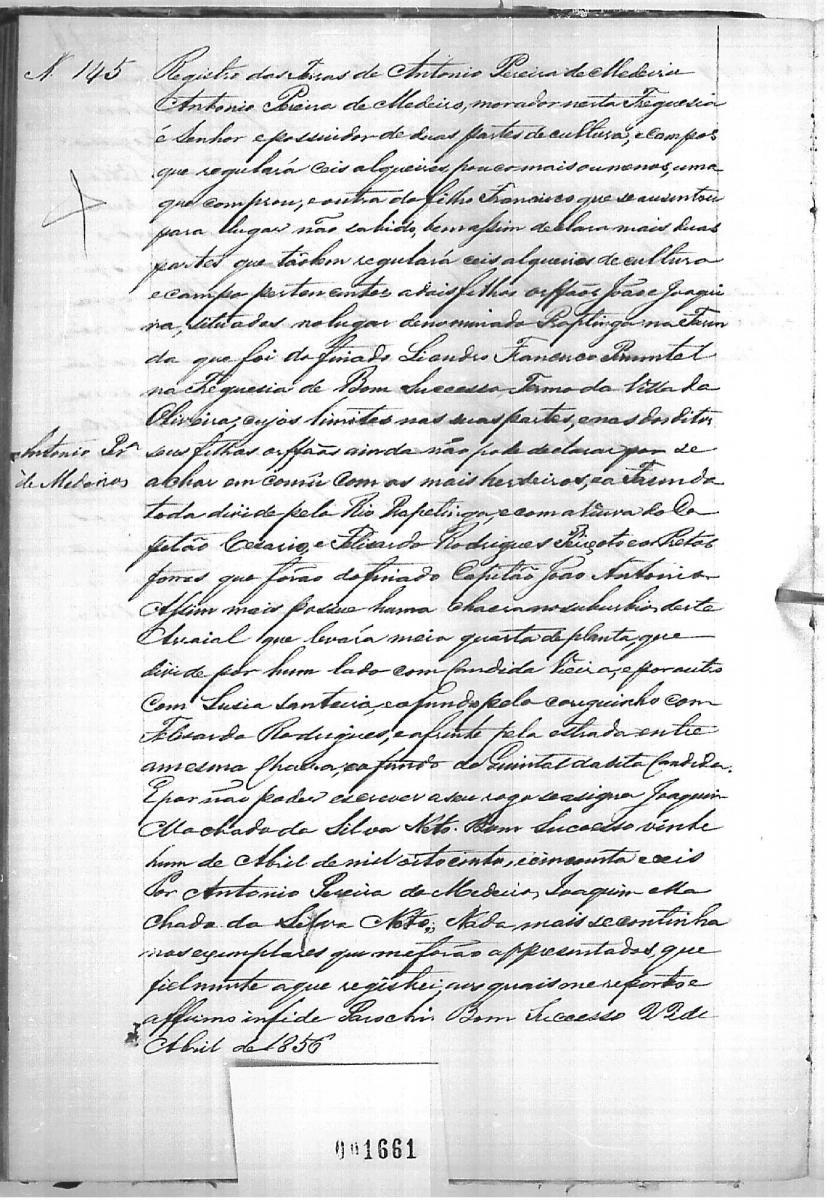 N. 145
Registro das terras de Antonio Pereira de Medeiro
Antonio Pereira de Medeiro, morador nesta Freguesia
é Senhor e possuidor de duas partes de cultura, e campos
que regulará ceis alqueires, pouco mais ou menos, uma
que comprou, e outra do filho Francisco que se ausentou
para lugar não sabido, bem assim declara mais duas
partes que tãobem regulará ceis alqueires de cultura
e campo pertencentes a dois filhos orffãos João e Joaqui
na, situadas no lugar denominado na Fazen
da que foi do finado Leandro Francisco Pimentel
na Freguesia de Bom Successo Termo da Villa da
Oliveira, cujos limites nas suas partes, e nas dos ditos
Antonio Prª
de Medeiros
seus filhos orffãos ainda não pode declarar por se
achar em comũ com os mais herdeiros, e a Fazenda
toda divide pelo Rio e com a viuva do Ca
pitão Cesario, e Felisardo Rodrigues Peixoto e os Pretos
forros que forão do finado Capitão João Antonio
Assim mais possue huma Chacra no suburbio deste
Arraial que levará meia quarta de planta, que
divide por hum lado com Candida Vieira, e por outro
Com Lusia e a fundo pelo corguinho com
Rodrigues, e a frente pela estrada entre
a mesma Chacra, e o fundo do Quintal da dita Candida.
E por não poder escrever a seu rogo se asigna Joaquim
Machado da Silva Neto. Bom Sucesso vinte
hum de Abril de mil oito cento, e cincoenta e ceis
Por Antonio Pereira de Medeiro, Joaquim Ma
chado da Silva Neto. Nada mais se continha
nos exemplares que me forão appresentados, que
fielmente aqui registrei, aos quais me reporto e
affirmo in fide Parochi. Bom Successo 22 de
Abril de 1856
001661